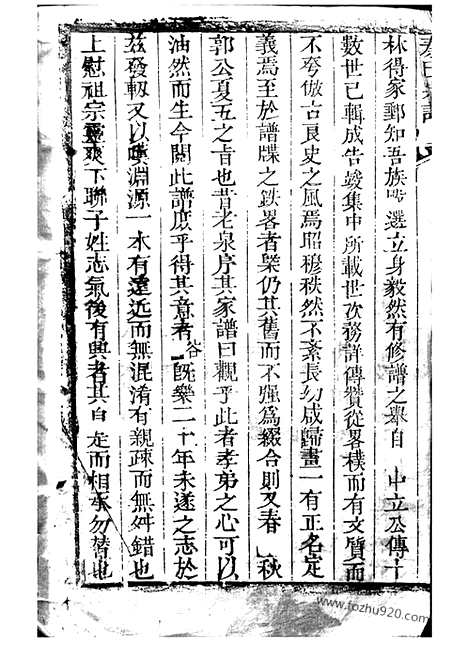 林得家郵知吾族
選立身毅然有修譜之舉自
中立公傳十
數世已輯成告竣集中所載世次務詳傳贊從畧樸而有文質而
不夸倣古良史之風焉昭穆秩然不紊長幼咸歸畫一有正名定
義焉至於譜牒之鉄畧者槩仍其舊而不强為綴合則又春秋
郭公夏五之旨也昔老泉序其家譜曰觀乎此者孝弟之心可以
油然而生今閱此譜庶乎得其意者
既樂二十年未遂之志於
茲發軔又以嘆淵源一水有遠近而無混淆有親疎而無舛錯也
上慰祖宗靈爽下聯子姓志氣後有興者其自
而相承勿替也
www.fozhu920.com